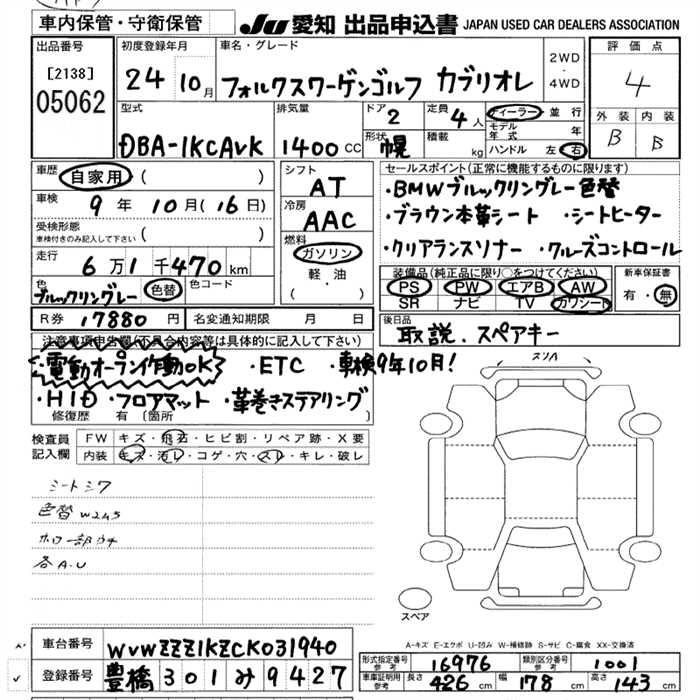 車内保管・守衛保管
JU 愛知 出品申込書 JAPAN USED CAR DEALERS ASSOCIATION
出品番号
[2138]
05062
初度登録年月
24 10月
車名・グレード
フォルクスワーゲンゴルフ カブリオレ
2WD
・
4WD
評価点
4
外装 内装
B B
型式
DBA-1KCAVK
排気量
1400 CC
ドア
2
形状
幌
定員
4 人
積載
kg
ディーラー 並行
モデル年式 年
ハンドル 左 右
車歴
自家用 ( )
車検
9年 10月(16日)
受検形態
車検付きのみ記入して下さい ( )
走行
6万1千470km
色
ブルックリングレー 色替
色コード
R券 17880円
名変通知期限 月 日
シフト
AT
冷房
AAC
燃料
ガソリン
軽油
( )
セールスポイント(正常に機能するものに限ります)
・BMWブルックリングレー色替
・ブラウン本革シート ・シートヒーター
・クリアランスソナー ・クルーズコントロール
装備品(純正品に限り○をつけてください)
PS PW エアB AW
SR ナビ TV カワシート
新車保証書
有・無
後日品
取説、スペアキー
注意事項申告欄(不具合内容等は具体的に記入して下さい)
・電動オープン作動OK ・ETC ・車検9年10月!
・HID ・フロアマット ・革巻きステアリング
修復歴 有 〔箇所 〕
検査員記入欄
FW キズ・飛石・ヒビ割・リペア跡・X要
内装 キズ・汚レ・コゲ・穴・スレ・キレ・破レ
シートシワ
色替 W245
各A.U
スペア
A-キズ E-エクボ U-凹み W-補修跡 S-サビ C-腐食 XX-交換済
車台番号 WVWZZZ1KZCK031940
登録番号 豊橋 301 み 9427
形式指定番号 参考 16976
類別区分番号 参考 1001
車庫証明用 参考 長さ 426 cm 幅 178 cm 高さ 143 cm